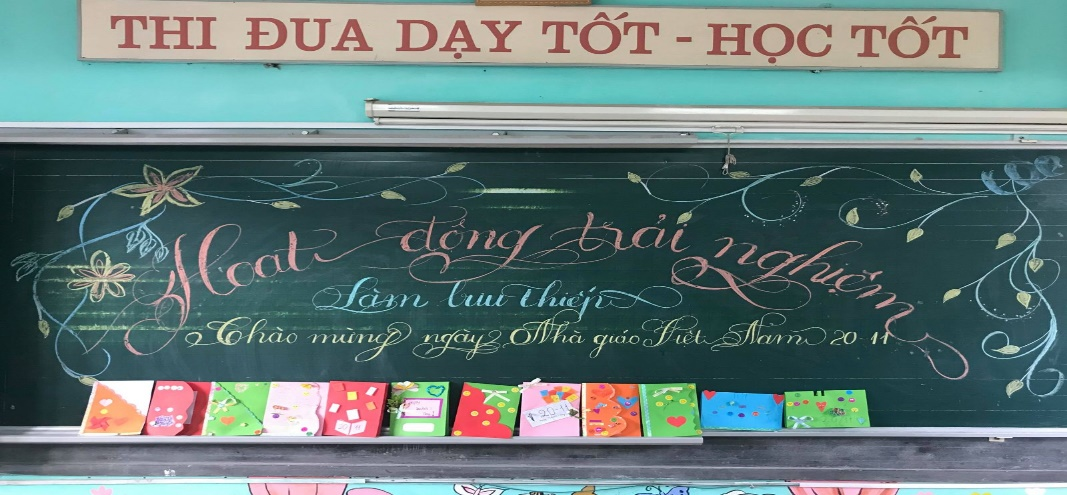 THI ĐUA DẠY TỐT - HỌC TỐT
Hoạt động trải nghiệm
Làm bưu thiếp
Chào mừng ngày Nhà giáo Việt Nam 20-11
20-11